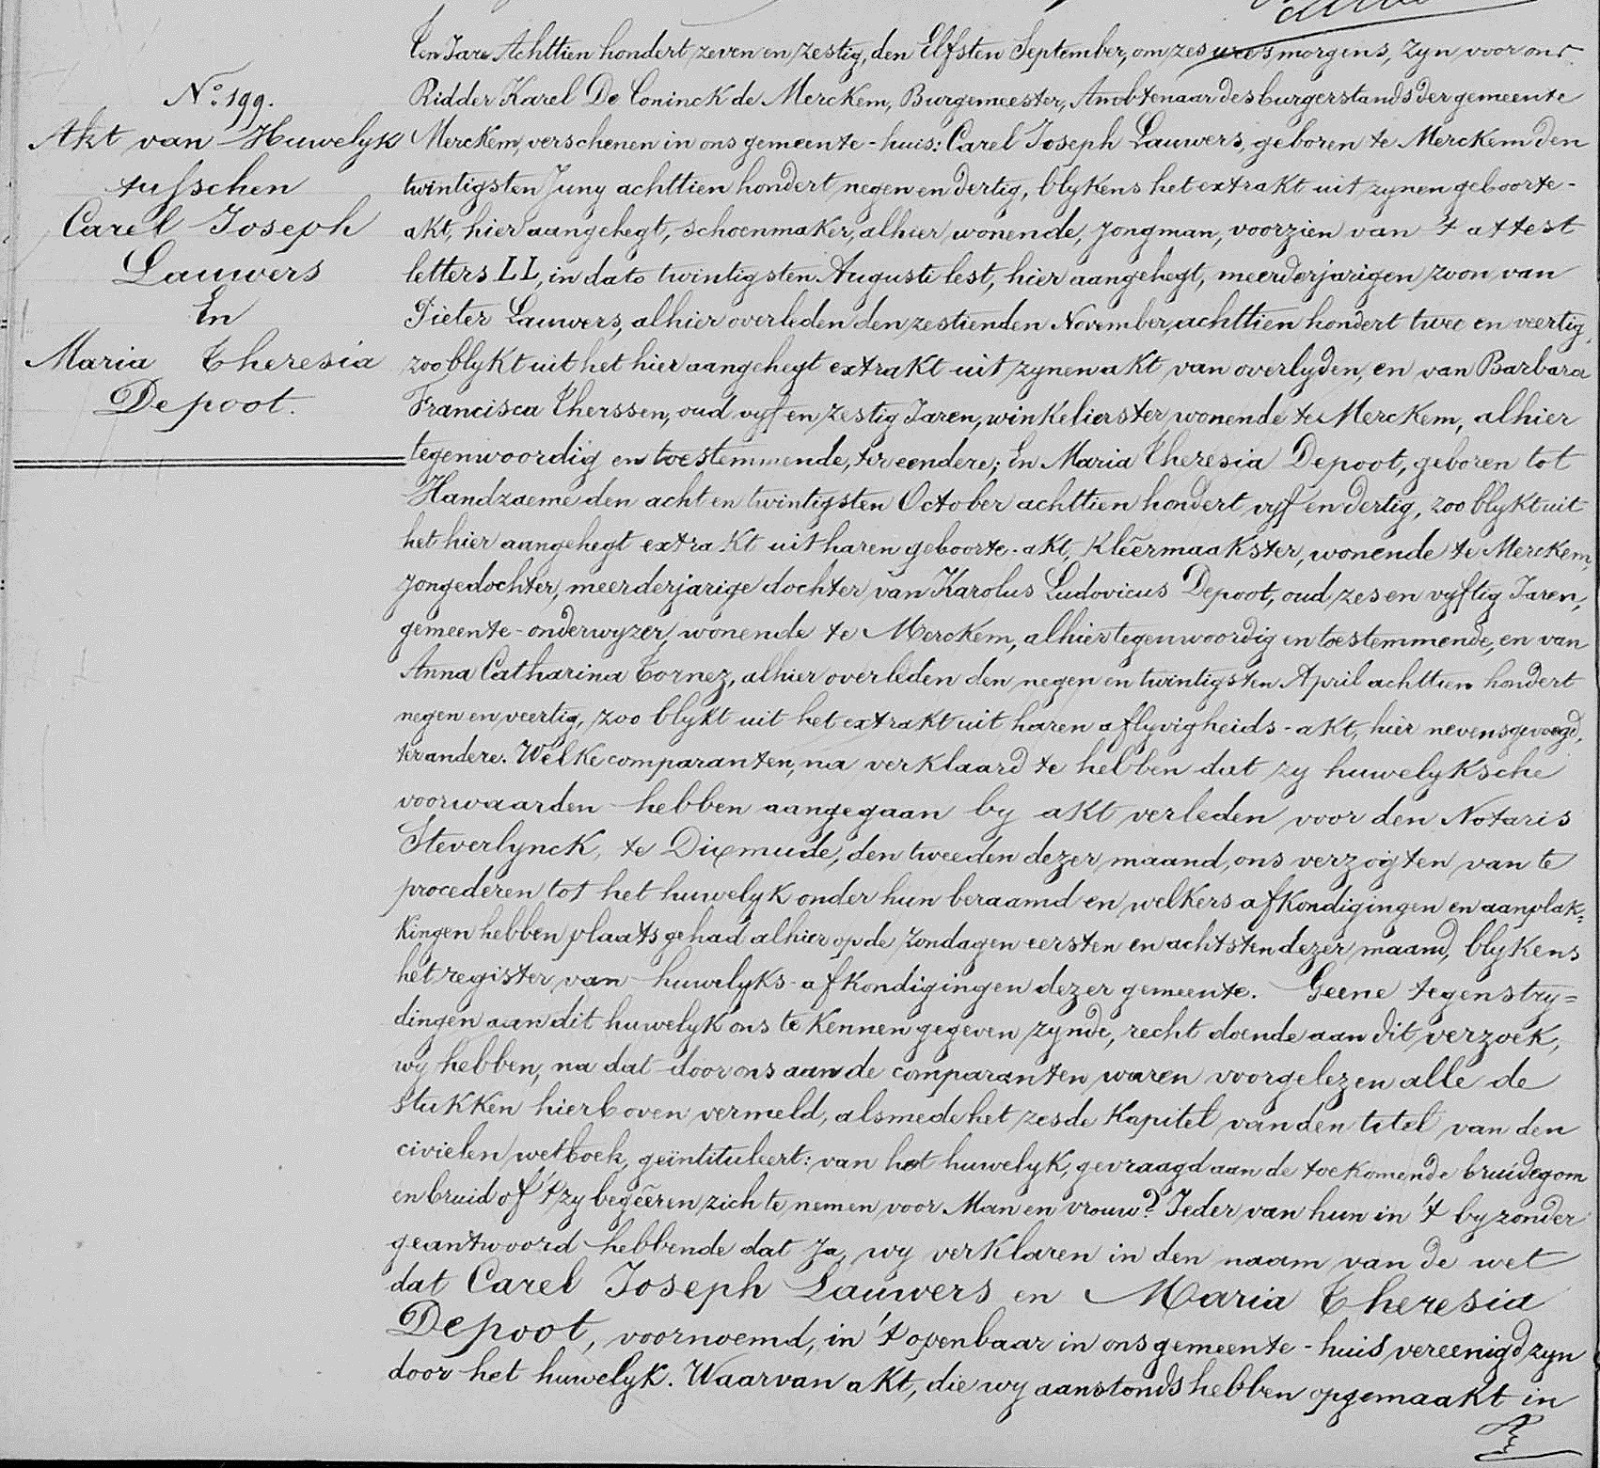 N.º 199.
Akt van Huwelyk
tusschen
Carel Joseph
Lauwers
En
Maria Theresia
Depoot.
Ten Jare Achttien hondert zeven en zestig, den Elfsten September, om zes ure 's morgens, zyn voor ons
Ridder Karel De Coninck de Merckem, Burgemeester, Ambtenaar des burgerstands der gemeente
Merckem, verschenen in ons gemeente-huis: Carel Joseph Lauwers, geboren te Merckem den
twintigsten Juny achttien hondert negen en dertig, blykens het extrakt uit zynen geboorte-
akt, hier aangehegt, schoenmaker, alhier wonende, jongman, voorzien van 't attest
letters LL, in dato twintigsten Auguste lest, hier aangehegt, meerderjarigen zoon van
Pieter Lauwers, alhier overleden den zestienden November, achttien hondert twee en veertig,
zoo blykt uit het hier aangehegt extrakt uit zynen akt van overlyden, en van Barbara
Francisca Therssen, oud vyf en zestig Jaren, winkelierster, wonende te Merckem, alhier
tegenwoordig en toestemmende, ter eendere; En Maria Theresia Depoot, geboren tot
Handzaeme den acht en twintigsten October achttien hondert vyf en dertig, zoo blykt uit
het hier aangehegt extrakt uit haren geboorte-akt, kleêrmaakster, wonende te Merckem,
jongedochter, meerderjarige dochter van Karolus Ludovicus Depoot, oud zes en vyftig Jaren,
gemeente-onderwyzer, wonende te Merckem, alhier tegenwoordig en toestemmende, en van
Anna Catharina Tornez, alhier overleden den negen en twintigsten April achttien hondert
negen en veertig, zoo blykt uit het extrakt uit haren aflyvigheids-akt, hier nevensgevoegd,
ter andere. Welke comparanten, na verklaard te hebben dat zy huwelyksche
voorwaarden hebben aangegaan by akt verleden voor den Notaris
Steverlynck, te Dixmude, den tweeden dezer maand, ons verzogten van te
procederen tot het huwelyk onder hun beraamd en welkers afkondigingen en aanplak=
kingen hebben plaats gehad alhier op de zondagen eersten en achtsten dezer maand, blykens
het register van huwelyks-afkondigingen dezer gemeente. Geene tegenstry=
dingen aan dit huwelyk ons te kennen gegeven zynde, recht doende aan dit verzoek,
wy hebben, na dat door ons aan de comparanten waren voorgelezen alle de
stukken hierboven vermeld, alsmede het zesde Kapitel van den titel van den
civielen wetboek, geïntituleert: van het huwelyk, gevraagd aan de toekomende bruidegom
en bruid of 't zy begêeren zich te nemen voor Man en vrouw? Ieder van hun in 't byzonder
geantwoord hebbende dat Ja, wy verklaren in den naam van de wet
dat Carel Joseph Lauwers en Maria Theresia
Depoot, voornoemd, in 't openbaar in ons gemeente-huis vereenigd zyn
door het huwelyk. Waarvan akt, die wy aanstonds hebben opgemaakt in